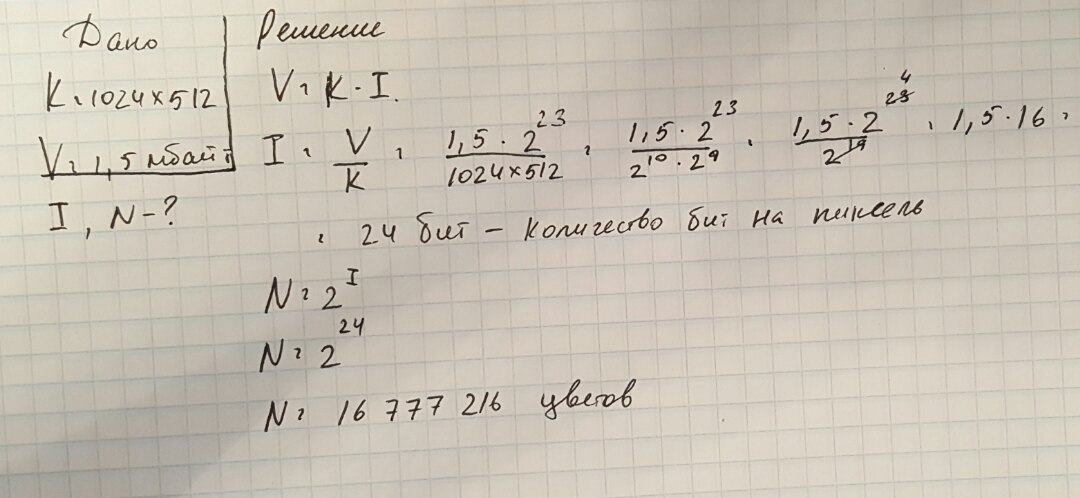 Дано
K = 1024×512
V = 1,5 мбайт
I, N - ?
Решение
V = K · I.
I = V/K = 1,5 · 2^23 / 1024×512 = 1,5 · 2^23 / 2^10 · 2^9 = 1,5 · 2^23 4 / 2^19 = 1,5 · 16 =
= 24 бит – количество бит на пиксель
N = 2^I
N = 2^24
N = 16 777 216 цветов